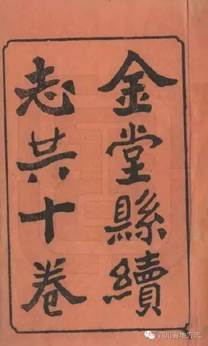 金堂縣續
志共十卷